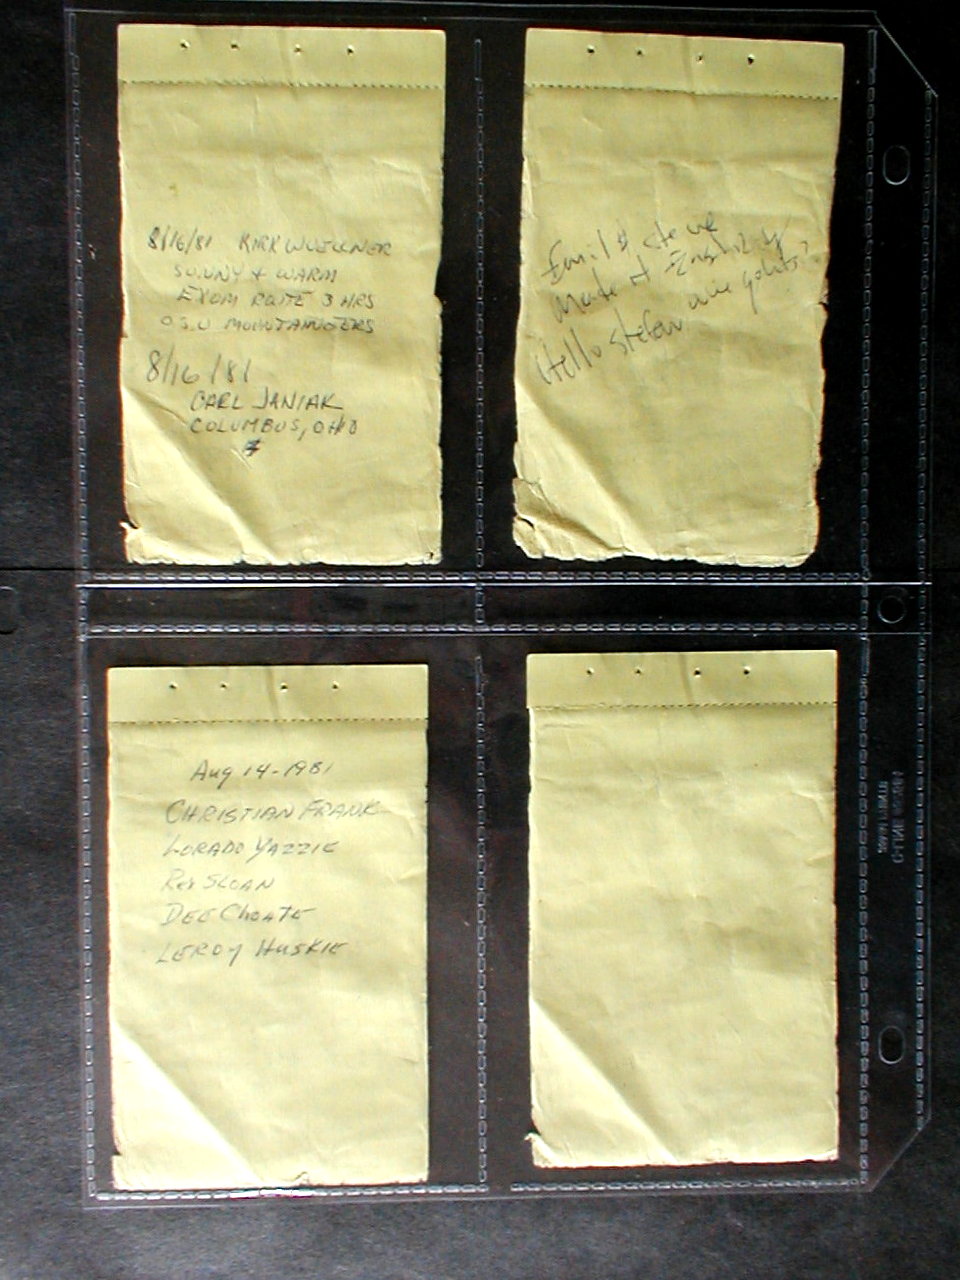 8/16/81 KIRK WUELLNER
SUNNY & WARM
EXUM ROUTE 3 HRS
O.S.U MOUNTAINEERS
8/16/81
CARL JANIAK
COLUMBUS, OHIO
Emil & Steve
Made it
Hello Stefan wie gehts?
Aug 14-1981
CHRISTIAN FRANK
LORADO YAZZIE
Rex SLOAN
DEE CHOATE
LEROY HUSKIE